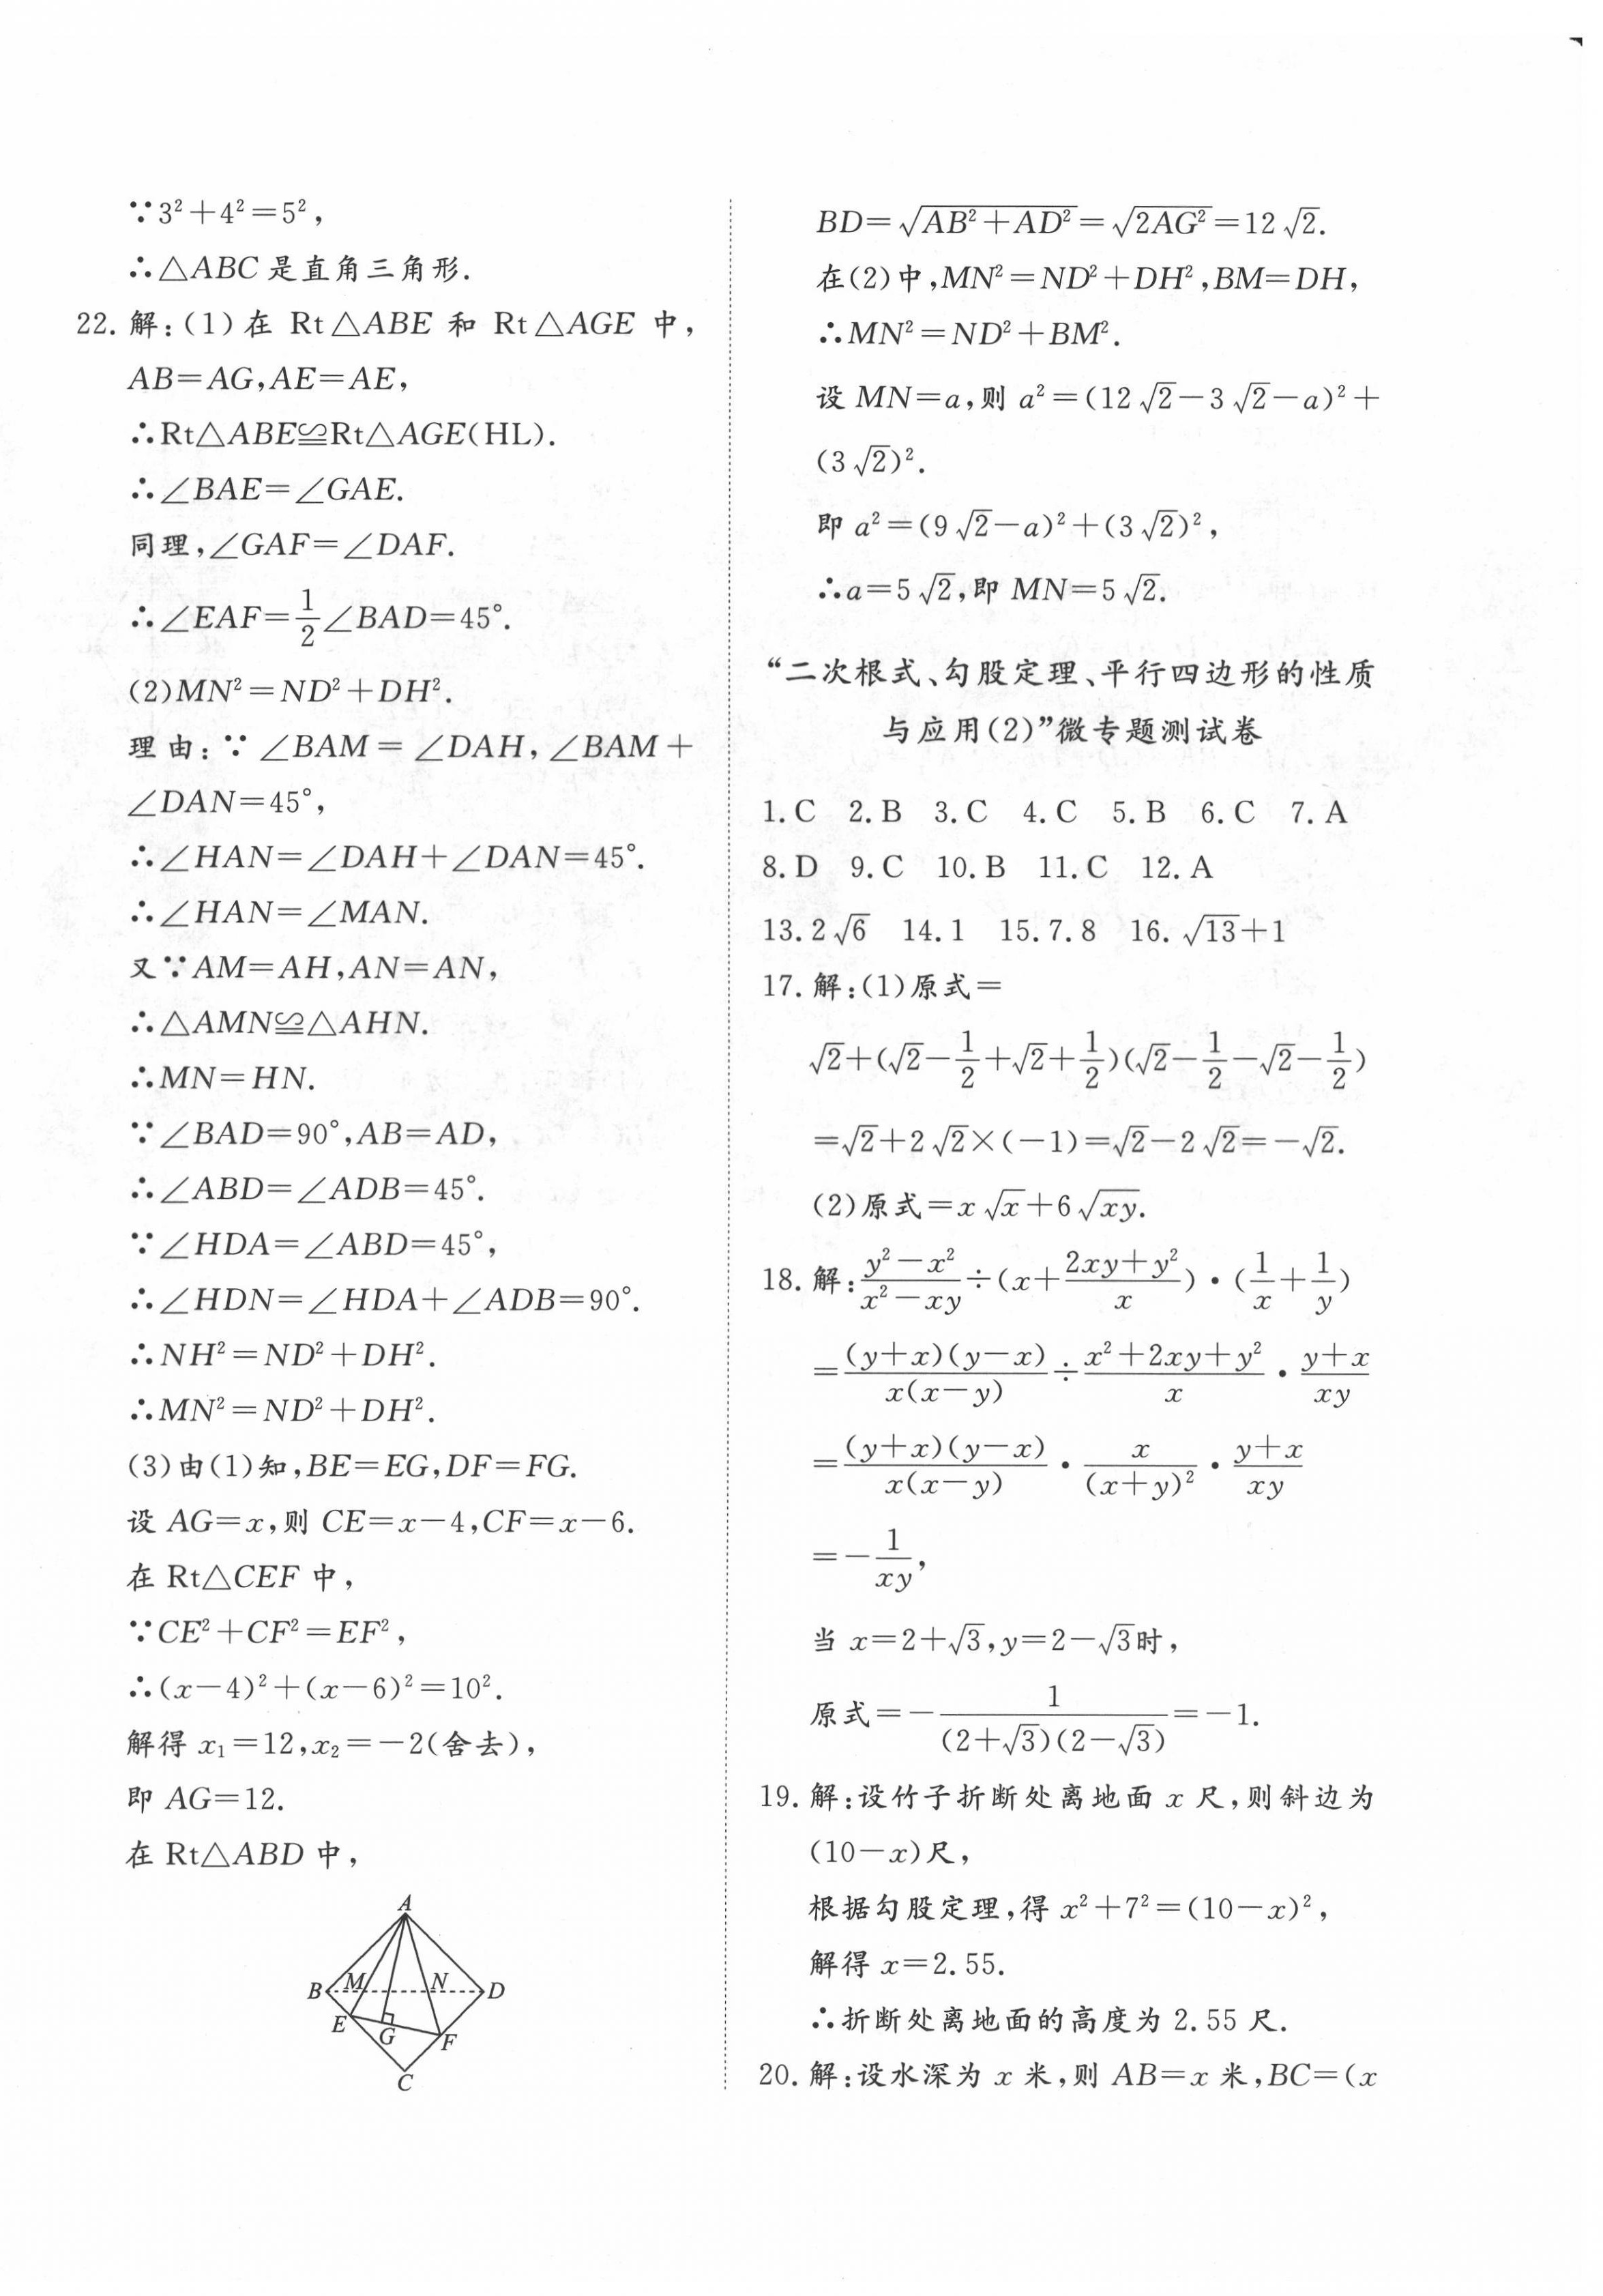 ∵3²+4²=5²,
∴△ABC 是直角三角形.
22. 解:(1)在 Rt△ABE 和 Rt△AGE 中,
AB=AG,AE=AE,
∴Rt△ABE≌Rt△AGE(HL).
∴∠BAE=∠GAE.
同理,∠GAF=∠DAF.
∴∠EAF=\frac{1}{2}∠BAD=45°.
(2)MN²=ND²+DH².
理由:∵∠BAM=∠DAH,∠BAM+
∠DAN=45°,
∴∠HAN=∠DAH+∠DAN=45°.
∴∠HAN=∠MAN.
又∵AM=AH,AN=AN,
∴△AMN≌△AHN.
∴MN=HN.
∵∠BAD=90°,AB=AD,
∴∠ABD=∠ADB=45°.
∵∠HDA=∠ABD=45°,
∴∠HDN=∠HDA+∠ADB=90°.
∴NH²=ND²+DH².
∴MN²=ND²+DH².
(3)由(1)知,BE=EG,DF=FG.
设 AG=x,则 CE=x-4,CF=x-6.
在 Rt△CEF 中,
∵CE²+CF²=EF²,
∴(x-4)²+(x-6)²=10².
解得 x₁=12,x₂=-2(舍去),
即 AG=12.
在 Rt△ABD 中,
A
B M N D
E G F
C
BD=\sqrt{AB²+AD²}=\sqrt{2AG²}=12√2.
在(2)中,MN²=ND²+DH²,BM=DH,
∴MN²=ND²+BM².
设 MN=a,则 a²=(12√2-3√2-a)²+
(3√2)².
即 a²=(9√2-a)²+(3√2)²,
∴a=5√2,即 MN=5√2.
“二次根式、勾股定理、平行四边形的性质
与应用(2)”微专题测试卷
1. C 2. B 3. C 4. C 5. B 6. C 7. A
8. D 9. C 10. B 11. C 12. A
13. 2√6 14. 1 15. 7.8 16. \sqrt{13}+1
17. 解:(1)原式=
√2+(√2-\frac{1}{2}+√2+\frac{1}{2})(√2-\frac{1}{2}-√2-\frac{1}{2})
=√2+2√2×(-1)=√2-2√2=-√2.
(2)原式=x√x+6\sqrt{xy}.
18. 解:\frac{y²-x²}{x²-xy}÷(x+\frac{2xy+y²}{x})·(\frac{1}{x}+\frac{1}{y})
=\frac{(y+x)(y-x)}{x(x-y)}÷\frac{x²+2xy+y²}{x}·\frac{y+x}{xy}
=\frac{(y+x)(y-x)}{x(x-y)}·\frac{x}{(x+y)²}·\frac{y+x}{xy}
=-\frac{1}{xy},
当 x=2+√3,y=2-√3时,
原式=-\frac{1}{(2+√3)(2-√3)}=-1.
19. 解:设竹子折断处离地面 x 尺,则斜边为
(10-x)尺,
根据勾股定理,得 x²+7²=(10-x)²,
解得 x=2.55.
∴折断处离地面的高度为 2.55 尺.
20. 解:设水深为 x 米,则 AB=x 米,BC=(x